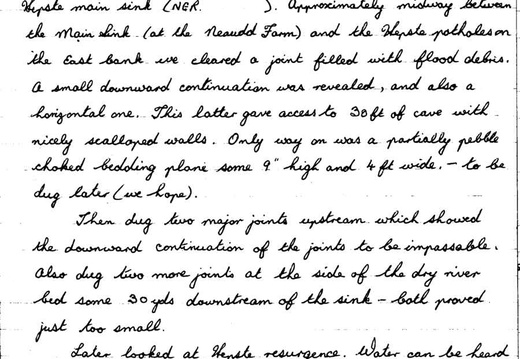 Hepste main sink (NGR.            ). Approximately midway between
the Main Sink (at the Neaudd Farm) and the Hepste potholes on
the East bank we cleared a joint filled with flood debris.
A small downward continuation was revealed, and also a
horizontal one. This latter gave access to 30ft of cave with
nicely scalloped walls. Only way on was a partially pebble
choked bedding plane some 9" high and 4ft wide. - to be
dug later (we hope).
Then dug two major joints upstream which showed
the downward continuation of the joints to be impassable.
Also dug two more joints at the side of the dry river
bed some 30yds downstream of the sink - both proved
just too small.
Later looked at Hepste resurgence. Water can be heard